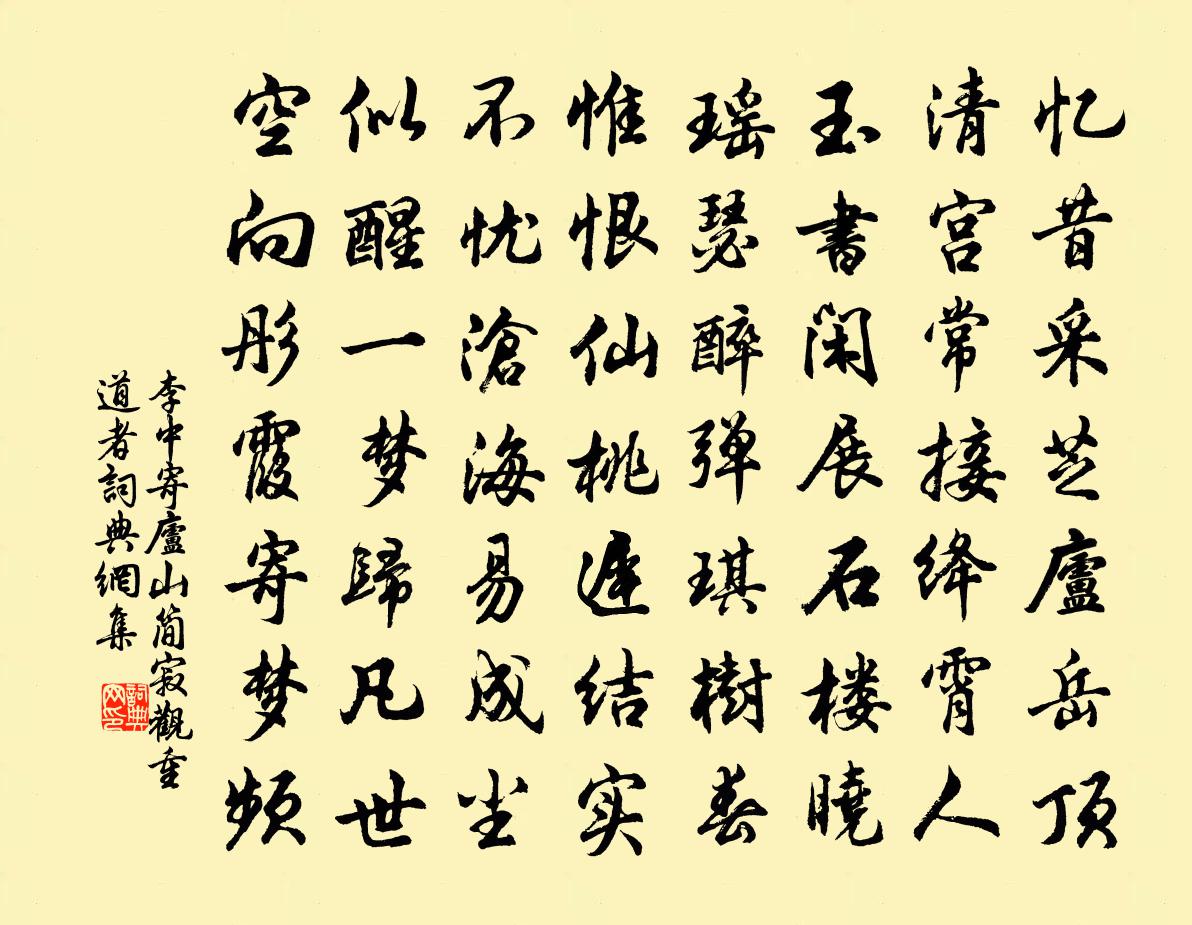 忆昔采芝廬岳顶
清宫常接绛霄人
玉書闲展石楼曉
瑶瑟醉弹琪樹春
惟恨仙桃遲结实
不忧滄海易成尘
似醒一梦歸凡世
空向彤霞寄梦频
李中寄廬山简寂觀重
道者詞典網集
詞典网印